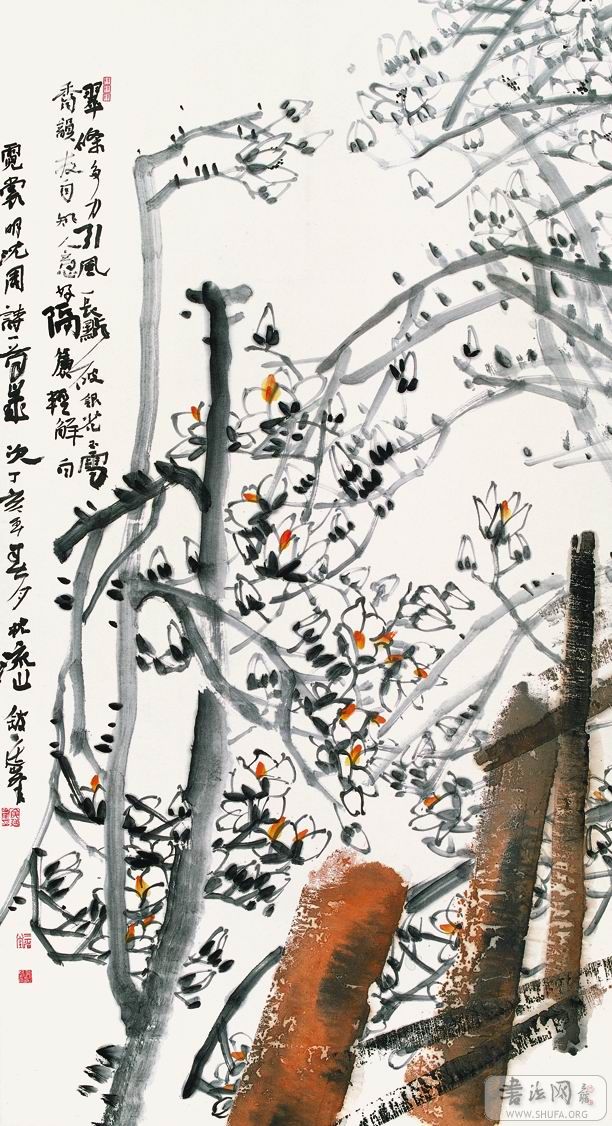 翠條多力引風長點破銀花玉雪
香韻友自知人意好隔簾輕解白
霓裳明沈周詩一首歲次丁亥年春夕
书法网
WWW.SHUFA.ORG